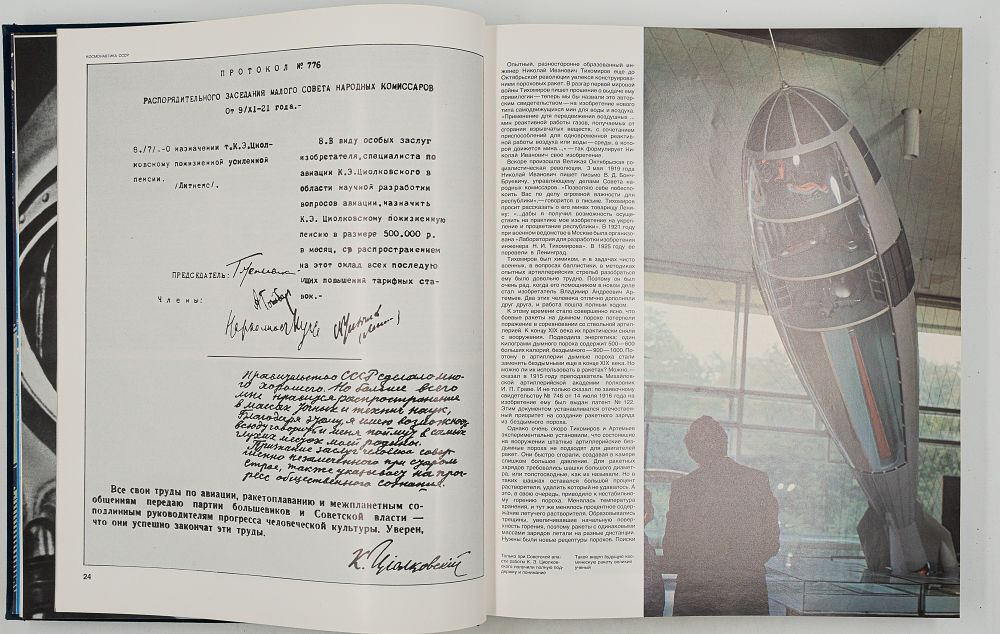 КОСМОНАВТИКА СССР
ПРОТОКОЛ № 776
РАСПОРЯДИТЕЛЬНОГО ЗАСЕДАНИЯ МАЛОГО СОВЕТА НАРОДНЫХ КОМИССАРОВ
От 9/XI-21 года.-
8./7/.-О назначении т.К.Э.Циол-
ковскому пожизненной усиленной
пенсии.
/Литкенс/.
8.В виду особых заслуг
изобретателя, специалиста по
авиации К.Э.Циолковского в
области научной разработки
вопросов авиации, назначить
К.Э. Циолковскому пожизненную
пенсию в размере 500.000 р.
в месяц, с распространением
на этот оклад всех последую
щих повышений тарифных ста-
вок.-
ПРЕДСЕДАТЕЛЬ:
Члены:
Правительство СССР сделало мно-
го хорошего. Но больше всего
мне нравится распространение
в массах точных и технич наук,
благодаря этому я имею возможность
всюду говорить и меня поймут в самых
глухих местах моей родины.
Признание заслуг человека совер
шенно незамеченного при старом
строе, также указывает на про-
гресс общественного сознания.
Все свои труды по авиации, ракетоплаванию и межпланетным со-
общениям передаю партии большевиков и Советской власти —
подлинным руководителям прогресса человеческой культуры. Уверен,
что они успешно закончат эти труды.
К. Циолковский
24
Опытный, разносторонне образованный ин-
женер Николай Иванович Тихомиров еще до
Октябрьской революции увлекся конструирова-
нием пороховых ракет. В разгар первой мировой
войны Тихомиров пишет прошение о выдаче ему
привилегии — теперь мы бы назвали это автор-
ским свидетельством — на изобретение нового
типа самодвижущихся мин для воды и воздуха.
«Применение для передвижения воздушных ...
мин реактивной работы газов, получаемых от
сгорания взрывчатых веществ, с сочетанием
приспособлений для одновременной реактив-
ной работы воздуха или воды — среды, в кото-
рой движется мина...» — так формулирует Ни-
колай Иванович свое изобретение.
Вскоре произошла Великая Октябрьская со-
циалистическая революция. 3 мая 1919 года
Николай Иванович пишет письмо В. Д. Бонч-
Бруевичу, управляющему делами Совета на-
родных комиссаров. «Позволяю себе побеспо-
коить Вас по делу огромной важности для
республики», — говорится в письме. Тихомиров
просит рассказать о его минах товарищу Лени-
ну: «...дабы я получил возможность осущест-
вить на практике мое изобретение на укреп-
ление и процветание республики». В 1921 году
при военном ведомстве в Москве была организо-
вана «Лаборатория для разработки изобретения
инженера Н. И. Тихомирова». В 1925 году ее
перевели в Ленинград.
Тихомиров был химиком, и в задачах чисто
военных, в вопросах баллистики, в методиках
опытных артиллерийских стрельб разобраться
ему было довольно трудно. Поэтому он был
очень рад, когда его помощником в новом деле
стал изобретатель Владимир Андреевич Ар-
темьев. Два этих человека отлично дополняли
друг друга, и работа пошла полным ходом.
К этому времени стало совершенно ясно, что
боевые ракеты на дымном порохе потерпели
поражение в соревновании со ствольной артил-
лерией. К концу XIX века их практически сняли
с вооружения. Подводила энергетика: один
килограмм дымного пороха содержит 500—600
больших калорий, бездымного — 900—1000. По-
этому в артиллерии дымные пороха стали
заменять бездымными еще в конце XIX века. Но
можно ли их использовать в ракетах? Можно, —
сказал в 1915 году преподаватель Михайлов-
ской артиллерийской академии полковник
И. П. Граве. И не только сказал: по заявочному
свидетельству № 746 от 14 июля 1916 года на
изобретение ему был выдан патент № 122.
Этим документом устанавливался отечествен-
ный приоритет на создание ракетного заряда
из бездымного пороха.
Однако очень скоро Тихомиров и Артемьев
экспериментально установили, что состоявшие
на вооружении штатные артиллерийские без-
дымные пороха не подходят для двигателей
ракет. Они быстро сгорали, создавая в камере
слишком большое давление. Для ракетных
зарядов требовались шашки большого диамет-
ра, или толстосводные, как их называли. Но в
таких шашках оставался большой процент
растворителя, удалить который не удавалось. А
это, в свою очередь, приводило к нестабильно-
му горению пороха. Менялась температура
хранения, и тут же менялось процентное содер-
жание летучего растворителя. Образовывались
трещины, увеличивавшие начальную поверх-
ность горения, поэтому ракеты с одинаковыми
массами зарядов летали на разные дистанции.
Нужны были новые рецептуры порохов. Поиски
Только при Советской вла-
сти работы К. Э. Циолков-
ского получили полную под-
держку и понимание
Такой видел будущую кос-
мическую ракету великий
ученый